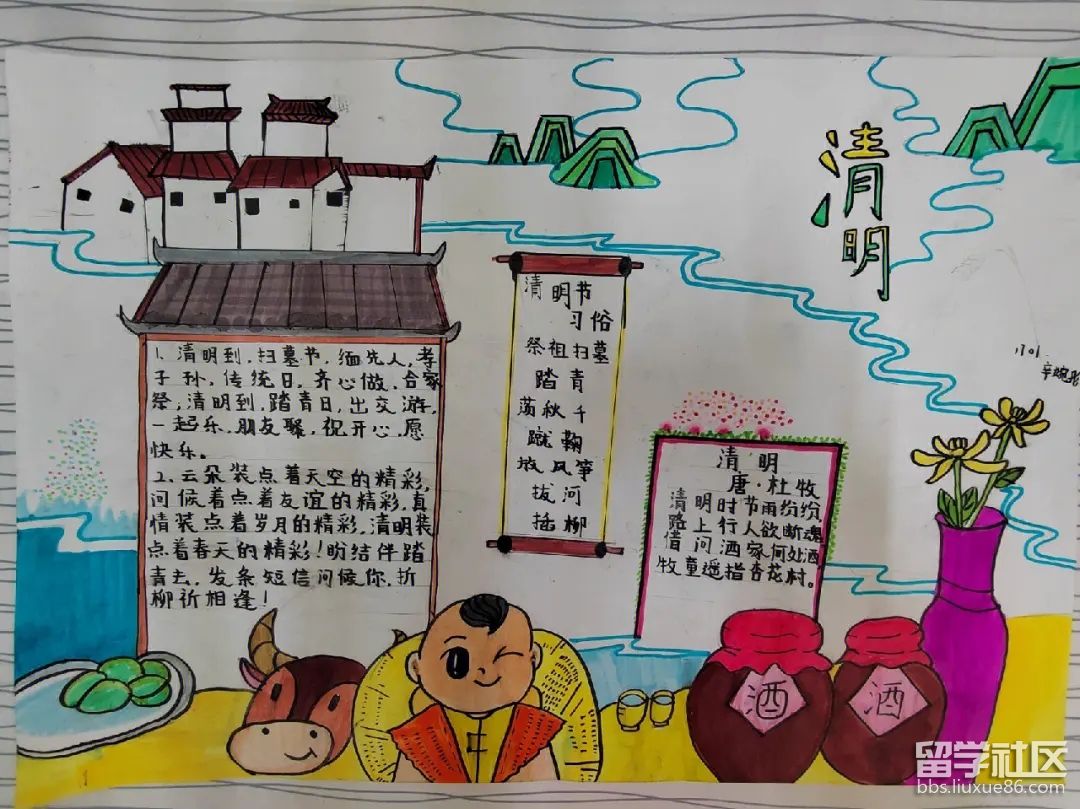 清明
1701
清明节
习俗
祭祖扫墓
踏青
荡秋千
蹴鞠
放风筝
拔河
插柳
1、清明到，扫墓节，缅先人，孝
子孙，传统日，齐心做，合家
祭；清明到，踏青日，出交游，
一起乐，朋友聚，祝开心，愿
快乐。
2、云朵装点着天空的精彩，
问候着点着友谊的精彩，真
情装点着岁月的精彩，清明装
点着春天的精彩！盼结伴踏
青去，发条短信问候你，折
柳祈相逢！
清明
唐·杜牧
清明时节雨纷纷，
路上行人欲断魂
借问酒家何处酒
牧童遥指杏花村。
酒
酒
留学社区
bbs.liuxue86.com